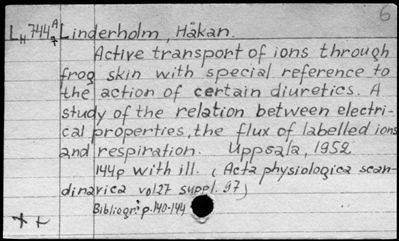 6
LH 744 A7 Linderholm, Håkan.
Active transport of ions through
frog skin with special reference to
the action of certain diuretics. A
study of the relation between electri-
cal properties, the flux of labelled ions
and respiration. Uppsala, 1952
144p with ill. (Acta physiologica scan-
dinavica vol 27 suppl. 97)
Bibliogr. p. 140-144
++